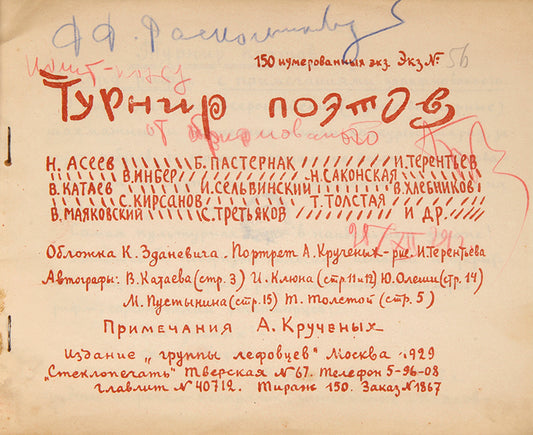 Ф.Ф. Раскольникову
150 нумерованных экз. Экз № 56
Турнир поэтов
Н. АСЕЕВ Б. ПАСТЕРНАК И. ТЕРЕНТЬЕВ
В. ИНБЕР Н. САКОНСКАЯ
В. КАТАЕВ И. СЕЛЬВИНСКИЙ В. ХЛЕБНИКОВ
С. КИРСАНОВ Т. ТОЛСТАЯ
В. МАЯКОВСКИЙ С. ТРЕТЬЯКОВ И ДР.
Обложка К. Зданевича. Портрет А. Крученых - рис. И. Терентьева
Автографы: В. Катаева (стр. 3) И. Клюна (стр. 11 и 12) Ю. Олеши (стр. 14)
М. Пустынина (стр. 15) Т. Толстой (стр. 5)
Примечания А. Крученых
Издание „группы лефовцев" Москва 1929
„Стеклопечать" Тверская № 67. Телефон 5-96-08
Главлит № 40712. Тираж 150. Заказ № 1867